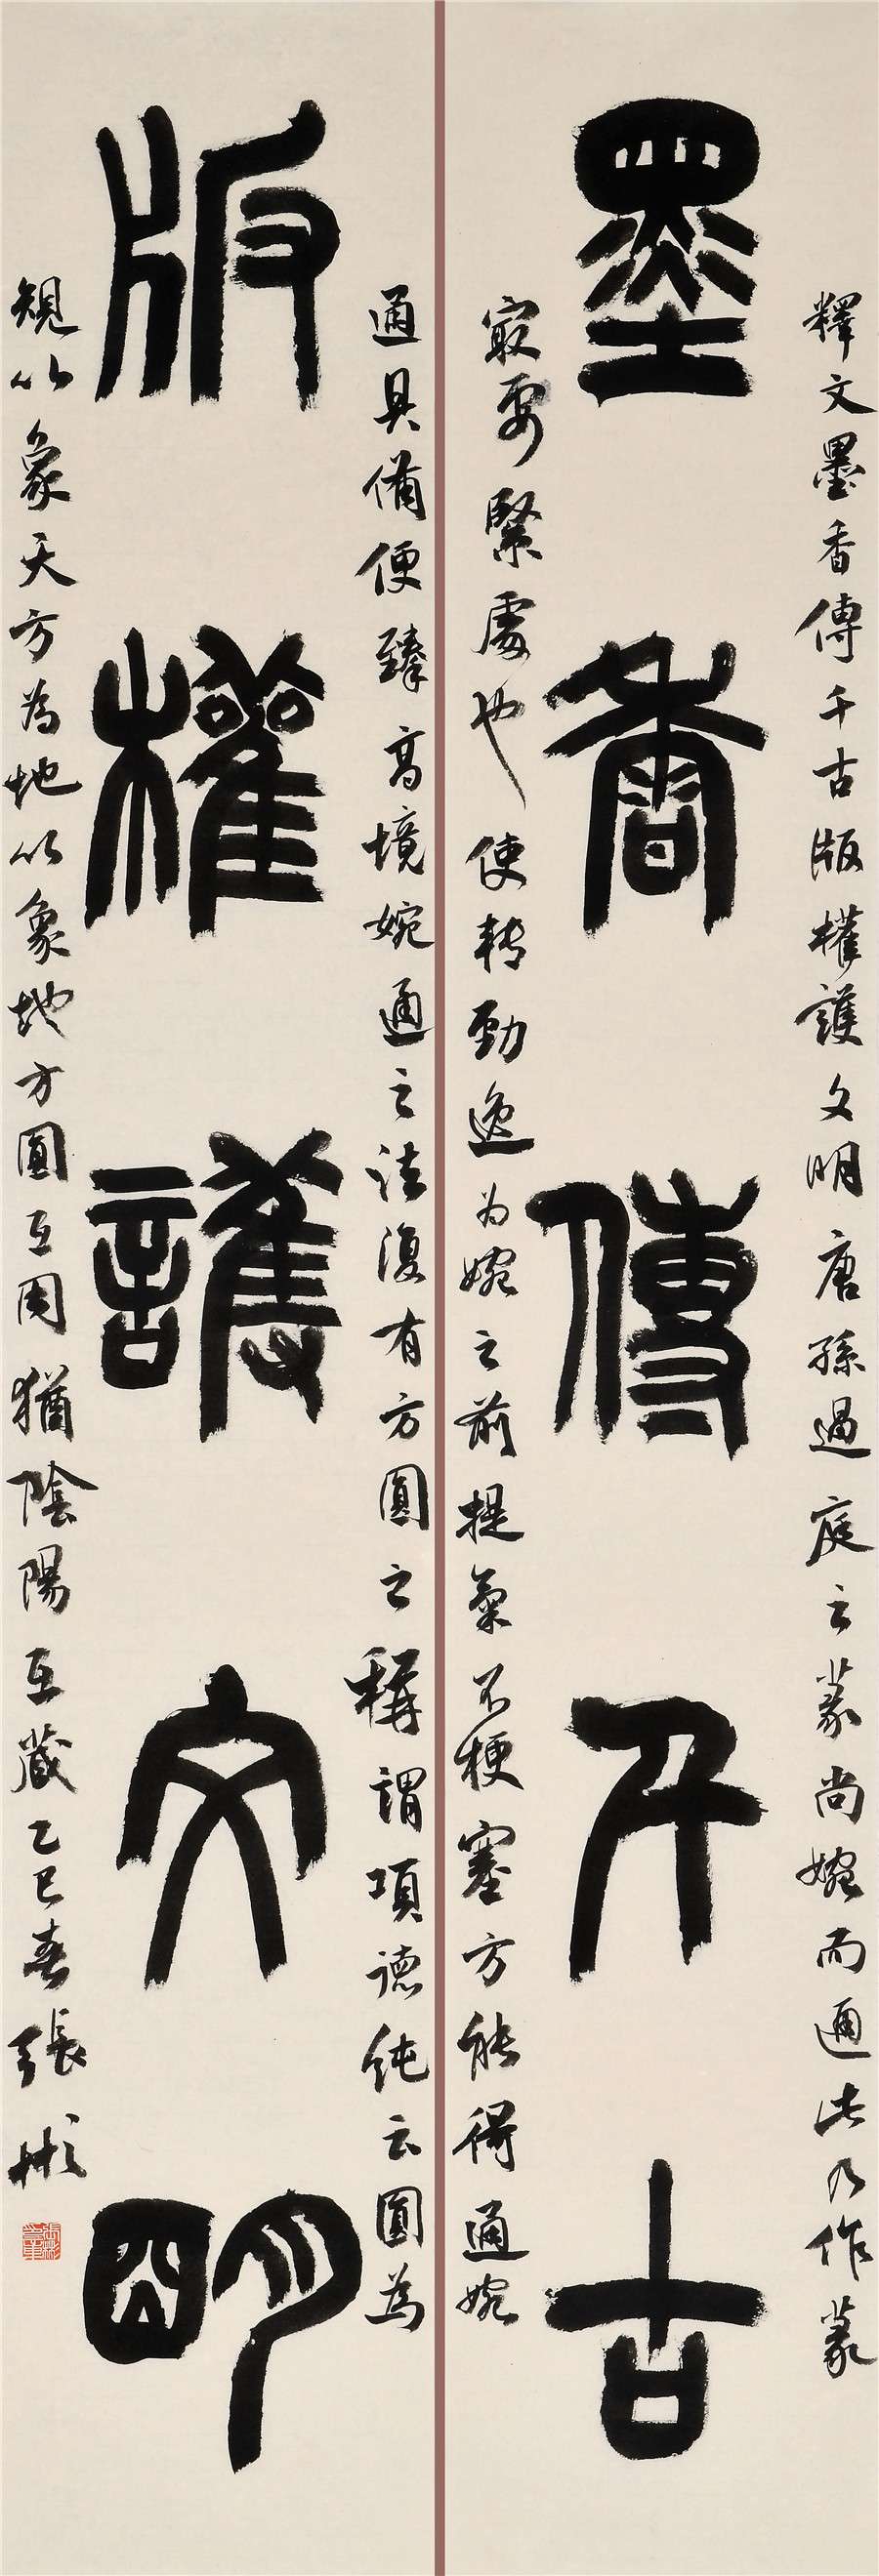 釋文墨香傳千古版權護文明唐孫過庭云篆尚婉而通此乃作篆
墨香傳千古
最要緊處也使轉勁逸為婉之前提氣不梗塞方能得通婉
通具備便臻高境婉通之法復有方圓之稱謂項德純云圓為
版權護文明
規以象天方為地以象地方圓互用猶陰陽互藏乙巳春張彬